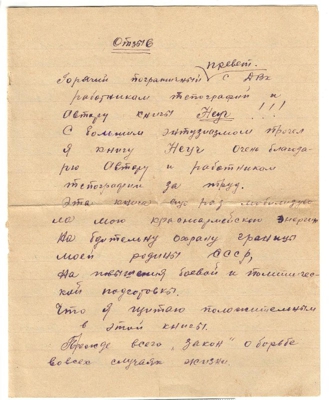 Отзыв
привет.
Горячий пограничный с ДВк
работникам типографии и
Автору книги Неуч !!!
С большим энтузиазмом прочел
я книгу Неуч очень благода-
рю Автору и работникам
типографии за труд.
Эта книга раз мобилизова
ла мою красноармейской энергии
На бдительну охрану границы
моей родины СССР,
На повышения боевой и политичес-
ской подготовки.
Что я щитаю положительным
в этой книги.
Прежде всего „Закон" о борьбе
во всех случаях жизни.